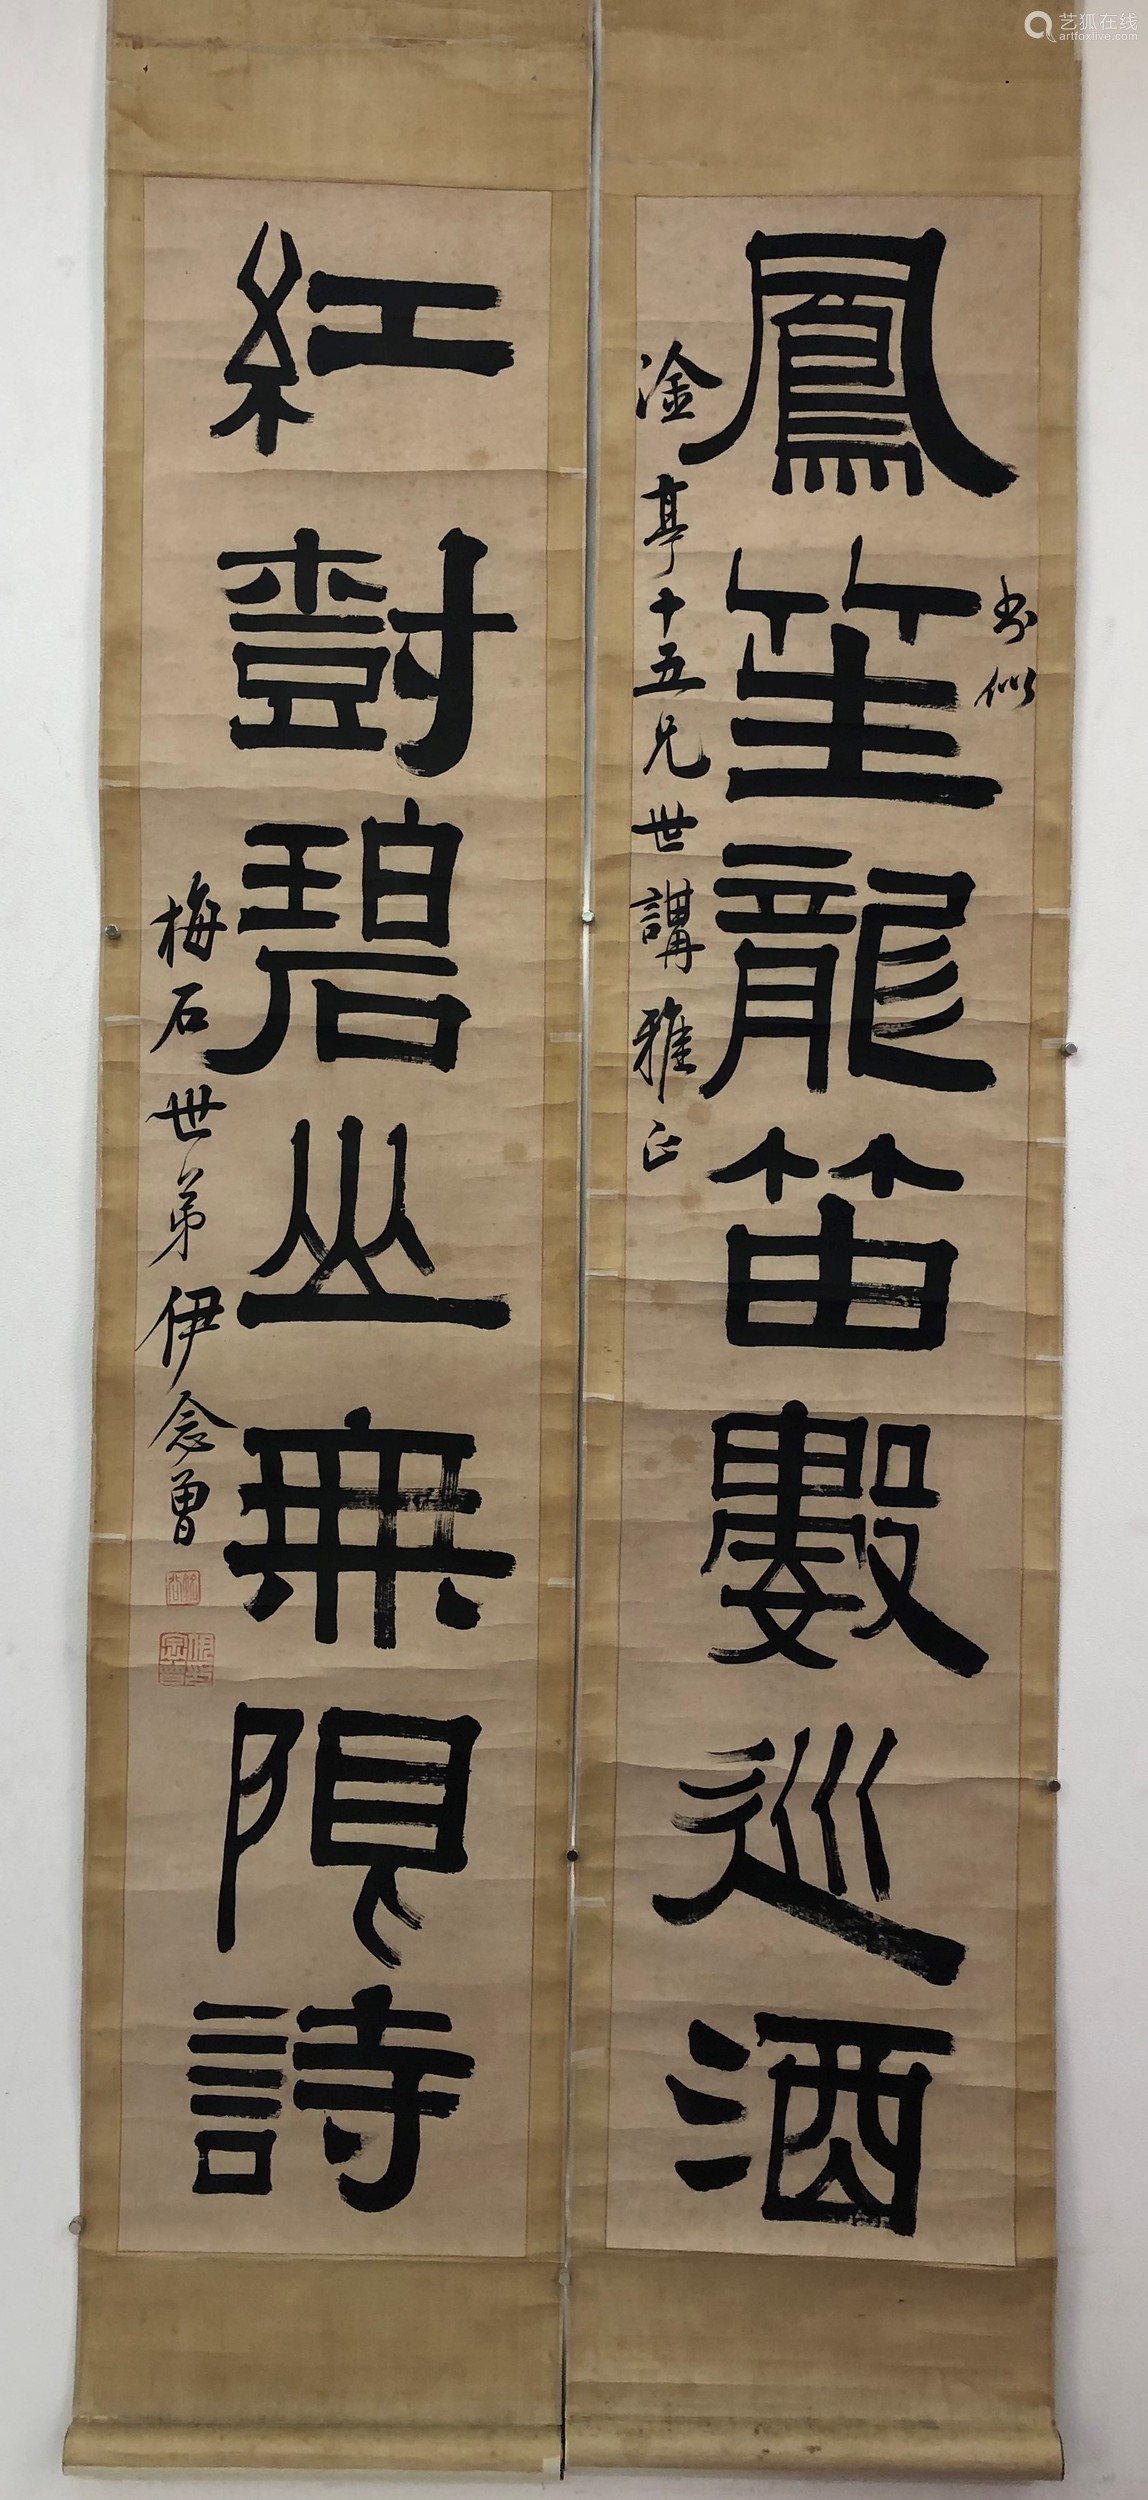 鳳笙龍笛數巡酒
書似
淦亭十五兄世講雅正
紅樹碧山無限詩
梅石世弟伊念曾
艺狐在线
artfoxlive.com